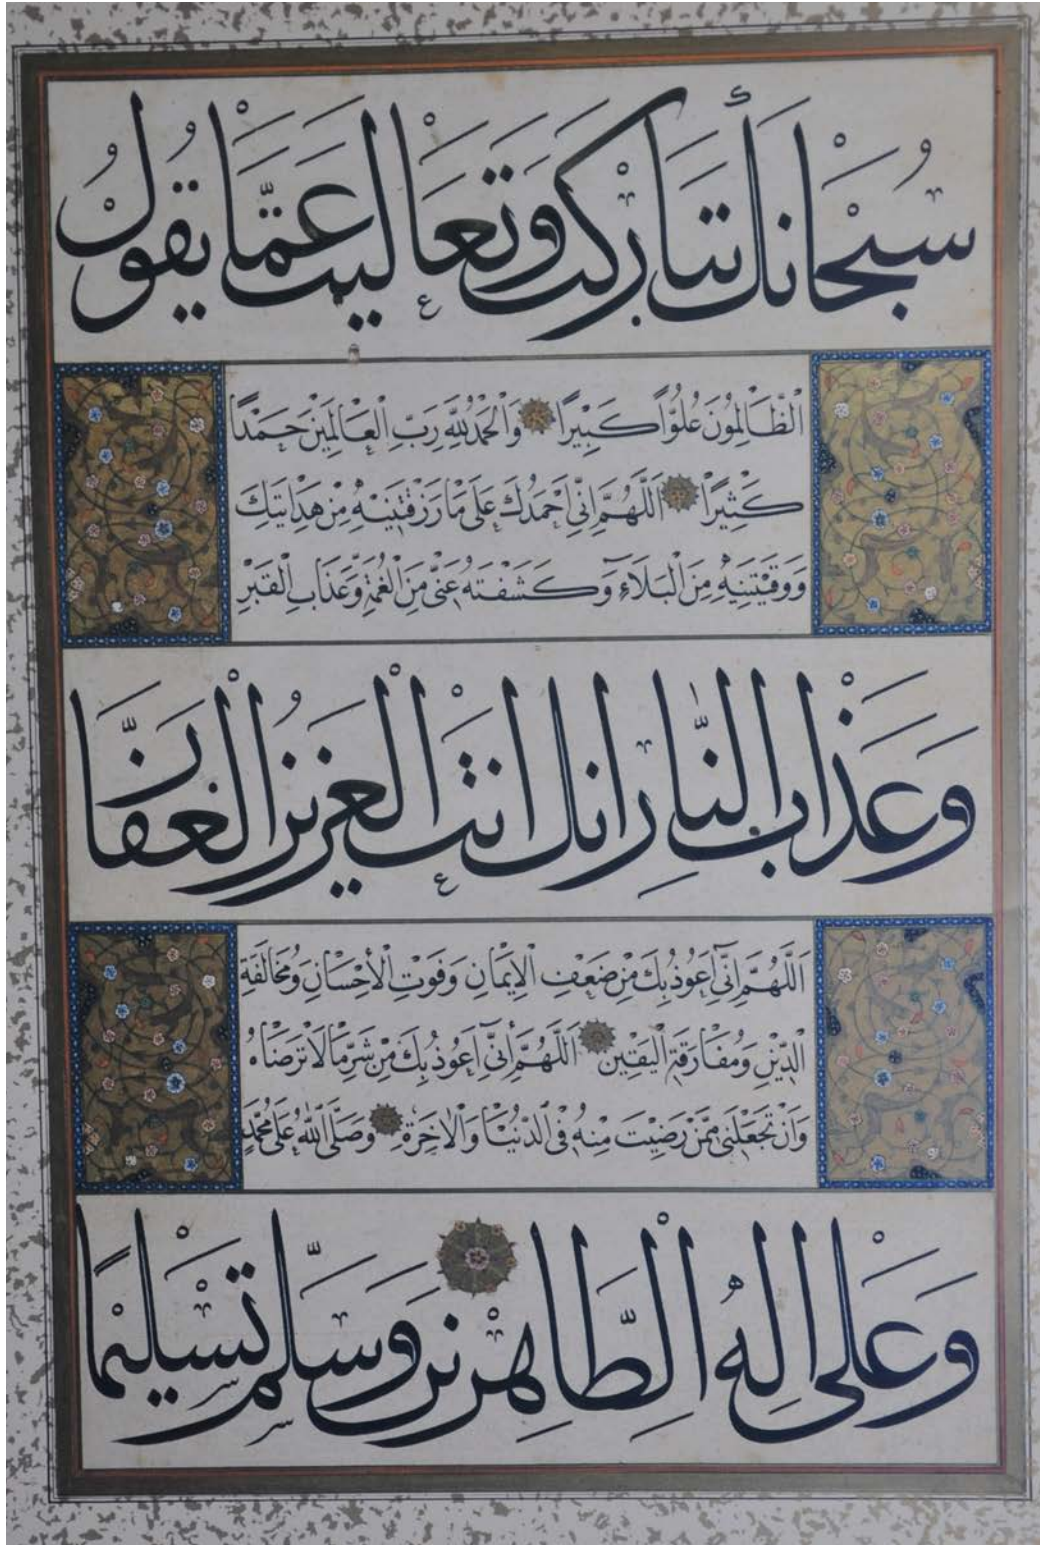 سُبْحَانَكَ تَبَارَكْتَ وَتَعَالَيْتَ عَمَّا يَقُولُ
الْظَّالِمُونَ عُلُوًّا كَبِيْرًا وَالْحَمْدُ لِلّٰهِ رَبِّ الْعَالَمِيْنَ حَمْدًا
كَثِيْرًا اَللّٰهُمَّ اِنِّي اَحْمَدُكَ عَلَى مَا رَزَقْتَنِيْهِ مِنْ هِدَايَتِكَ
وَوَقَيْتَنِيْهِ مِنَ الْبَلَاءِ وَكَشَفْتَهُ عَنِّي مِنَ الْغُمَّةِ وَعَذَابِ الْقَبْرِ
وَعَذَابِ النَّارِ اِنَّكَ اَنْتَ الْعَزِيزُ الْغَفَّارُ
اَللّٰهُمَّ اِنِّي اَعُوْذُ بِكَ مِنْ ضَعْفِ الْاِيْمَانِ وَفَوْتِ الْأِحْسَانِ وَمُخَالَفَةِ
الدِّيْنِ وَمُفَارَقَةِ الْيَقِيْنِ اَللّٰهُمَّ اِنِّي اَعُوْذُ بِكَ مِنْ شَرِّ مَا لَا تَرْضَاهُ
وَاَنْ تَجْعَلَنِي مِمَّنْ رَضِيْتَ مِنْهُ فِي الدُّنْيَا وَالْاٰخِرَةِ وَصَلَّى اللّٰهُ عَلَى مُحَمَّدٍ
وَعَلَى اٰلِهِ الْطَّاهِرِيْنَ وَسَلَّمَ تَسْلِيْمًا